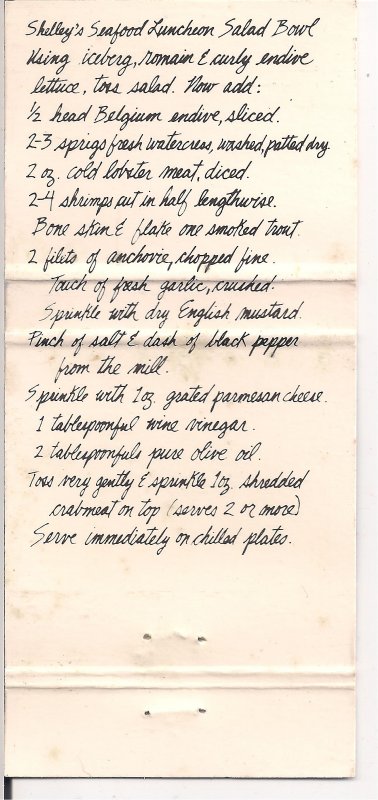 Shelley's Seafood Luncheon Salad Bowl
Using iceberg, romain & curly endive
lettuce, toss salad. Now add:
½ head Belgium endive, sliced.
2-3 sprigs fresh watercress, washed, patted dry.
2 oz. cold lobster meat, diced.
2-4 shrimps cut in half lengthwise.
Bone skin & flake one smoked trout.
2 filets of anchovie, chopped fine.
Touch of fresh garlic, crushed.
Sprinkle with dry English mustard.
Pinch of salt & dash of black pepper
from the mill.
Sprinkle with 1 oz. grated parmesan cheese.
1 tablespoonful wine vinegar.
2 tablespoonfuls pure olive oil.
Toss very gently & sprinkle 1 oz. shredded
crabmeat on top (serves 2 or more)
Serve immediately on chilled plates.